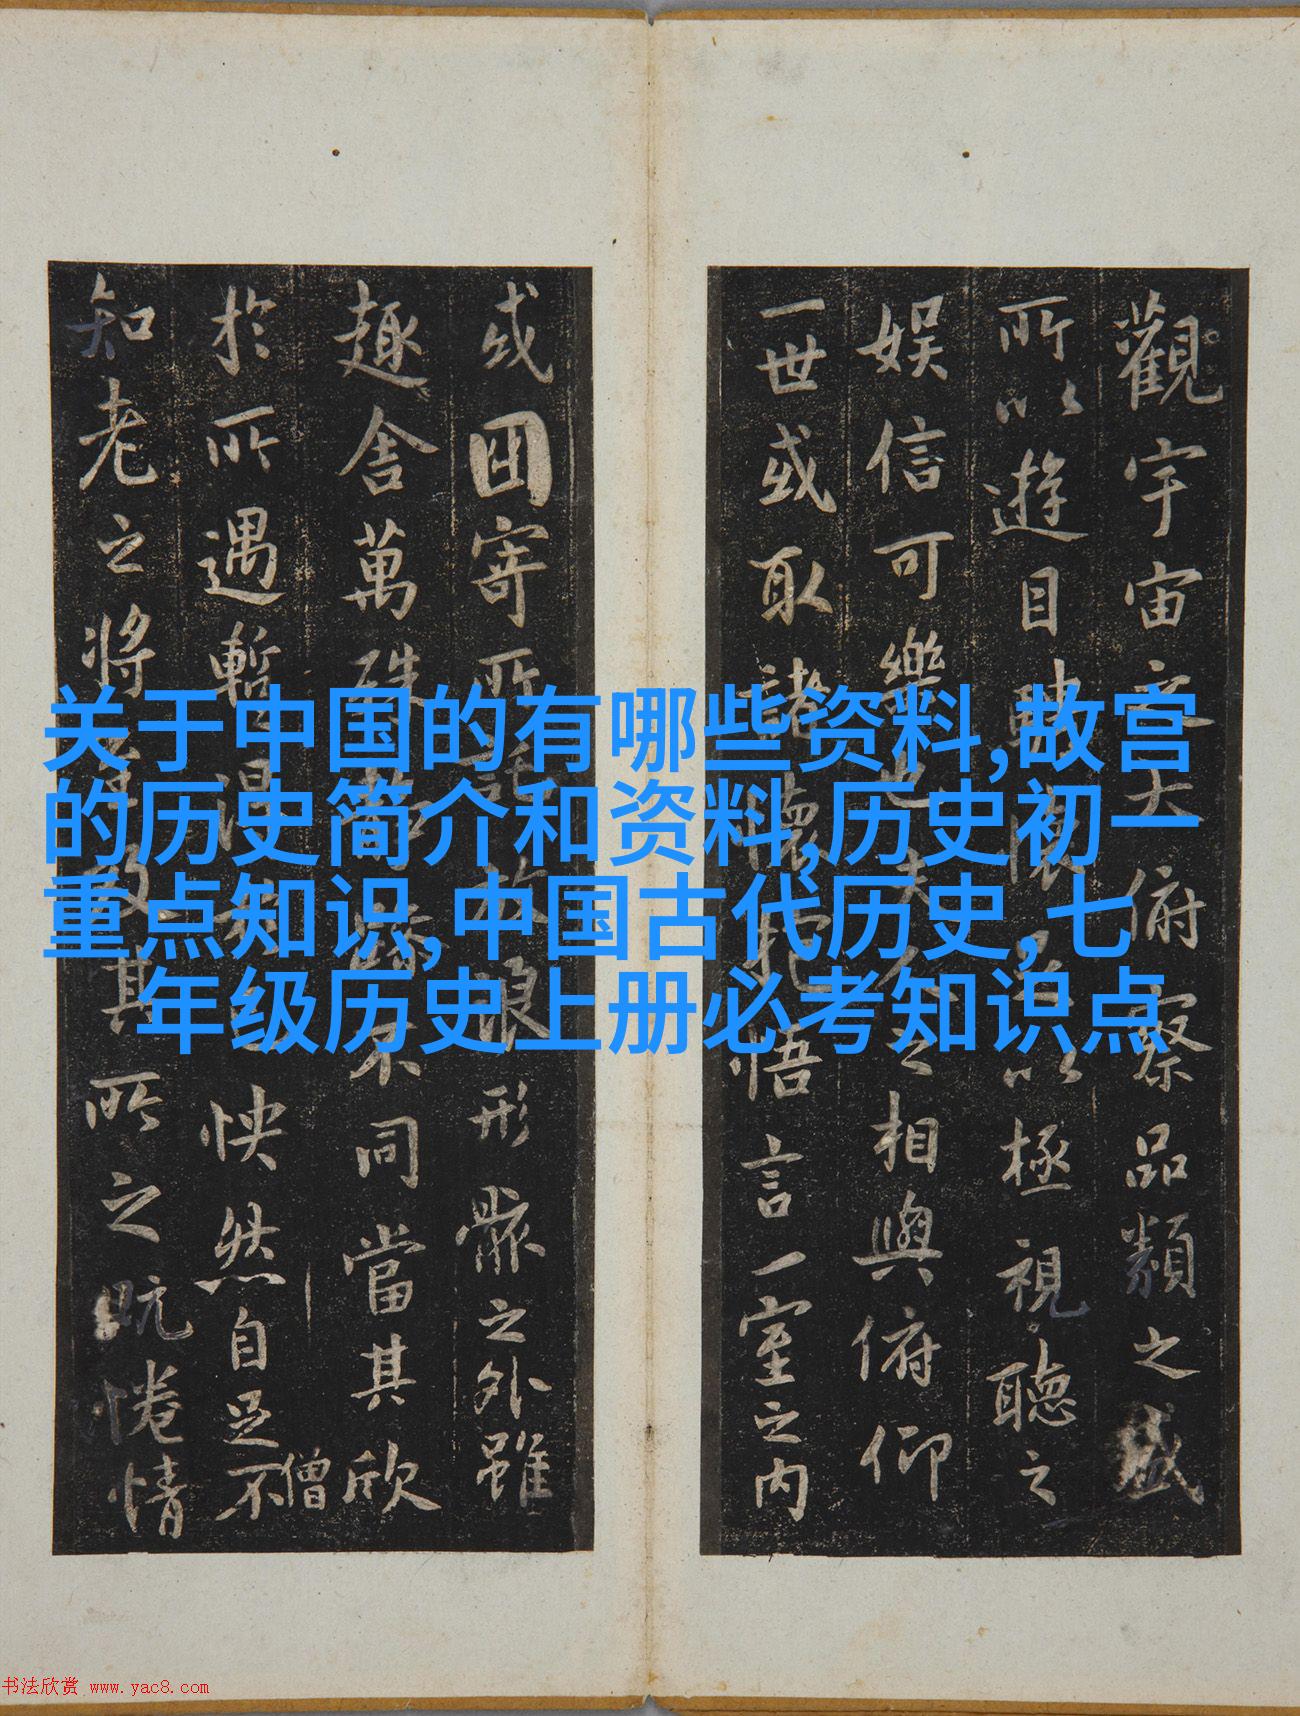 关于中国的有哪些资料,故宫
的历史简介和资料,历史初一
重点知识,中国古代历史, 七
年级历史上册必考知识点
觀宇宙之大俯察品類之盛
所以遊目騁懷足以極視聽之
娱信可樂也夫人之相與俯仰
一世或取諸懷抱悟言一室之内
或因寄所託放浪形骸之外雖
趣舍萬殊静躁不同當其欣
於所遇暫得於己快然自足不
僧
知老之將至及其所之既惓情
书法欣赏 www.yac8.com